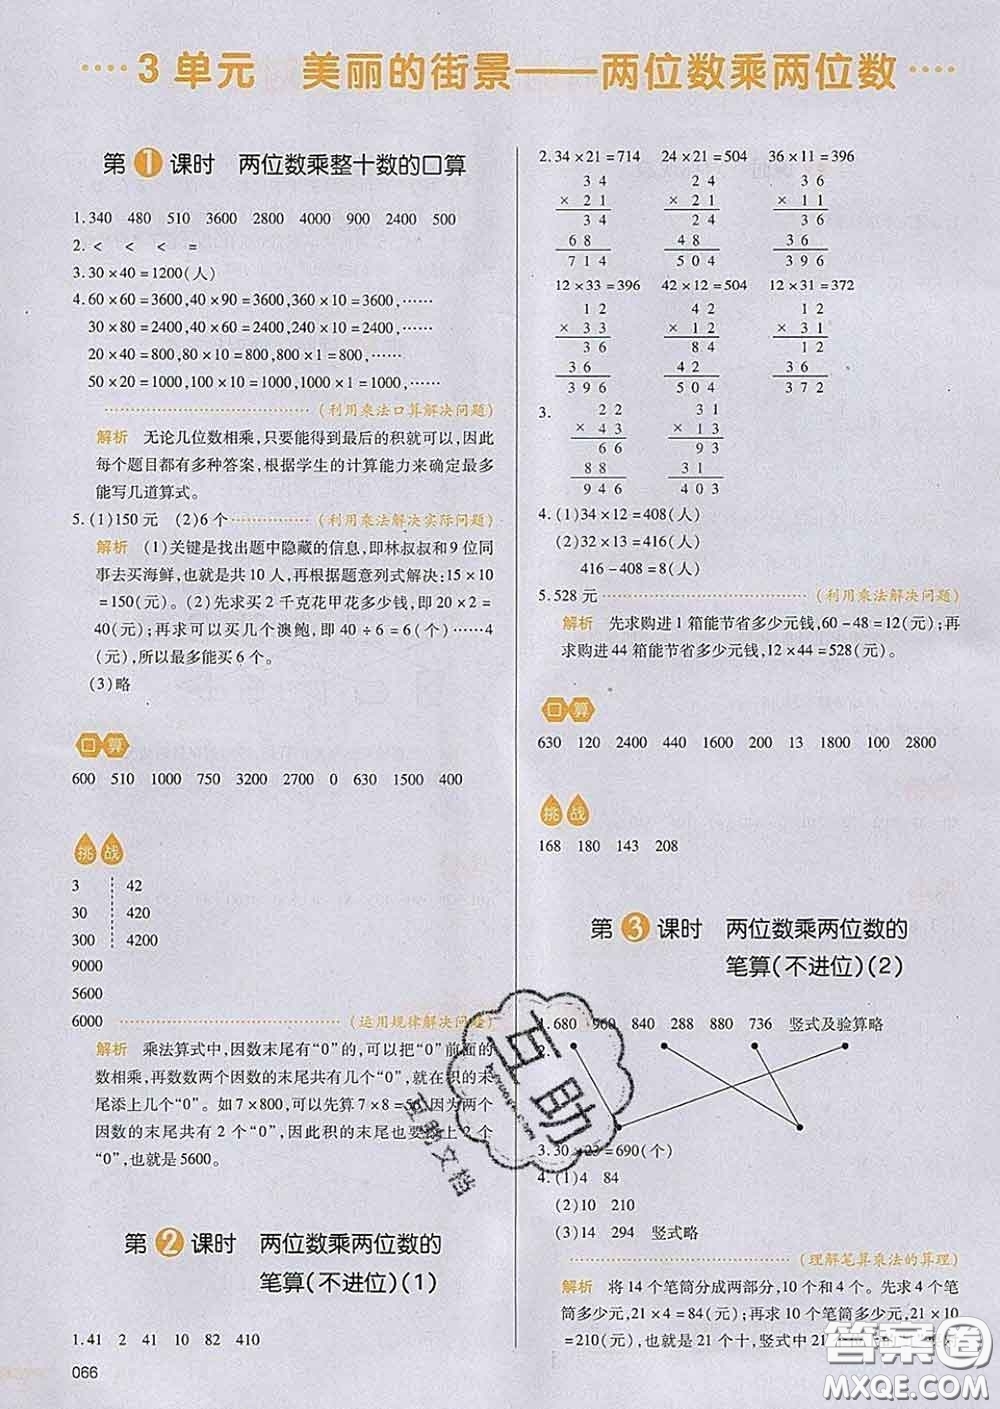 3 单元　美丽的街景——两位数乘两位数
第 1 课时　两位数乘整十数的口算
1.340　480　510　3600　2800　4000　900　2400　500
2.<　<　<　=
3.30×40=1200(人)
4.60×60=3600,40×90=3600,360×10=3600,……
30×80=2400,60×40=2400,240×10=2400,……
20×40=800,80×10=800,800×1=800,……
50×20=1000,100×10=1000,1000×1=1000,……
(利用乘法口算解决问题)
解析　无论几位数相乘,只要能得到最后的积就可以,因此
每个题目都有多种答案,根据学生的计算能力来确定最多
能写几道算式。
5.(1)150元　(2)6个 (利用乘法解决实际问题)
解析　(1)关键是找出题中隐藏的信息,即林叔叔和9位同
事去买海鲜,也就是共10人,再根据题意列式解决:15×10
=150(元)。(2)先求买2千克花甲花多少钱,即20×2=
40(元);再求可以买几个澳鲍,即40÷6=6(个)……4
(元),所以最多能买6个。
(3)略
口算
600　510　1000　750　3200　2700　0　630　1500　400
挑战
3　42
30　420
300　4200
9000
5600
6000 (运用规律解决问题)
解析　乘法算式中,因数末尾有“0”的,可以把“0”前面的
数相乘,再数数两个因数的末尾共有几个“0”,就在积的末
尾添上几个“0”。如7×800,可以先算7×8=56,因为两个
因数的末尾共有2个“0”,因此积的末尾也要添上2个
“0”,也就是5600。
第 2 课时　两位数乘两位数的
笔算(不进位)(1)
1.41　2　41　10　82　410
066
2.34×21=714　24×21=504　36×11=396
3 4　2 4　3 6
× 2 1　× 2 1　× 1 1
3 4　2 4　3 6
6 8　4 8　3 6
7 1 4　5 0 4　3 9 6
12×33=396　42×12=504　12×31=372
1 2　4 2　1 2
× 3 3　× 1 2　× 3 1
3 6　8 4　1 2
3 6　4 2　3 6
3 9 6　5 0 4　3 7 2
3.　2 2　3 1
× 4 3　× 1 3
6 6　9 3
8 8　3 1
9 4 6　4 0 3
4.(1)34×12=408(人)
(2)32×13=416(人)
416-408=8(人)
5.528元 (利用乘法解决问题)
解析　先求购进1箱能节省多少元钱,60-48=12(元);再
求购进44箱能节省多少元钱,12×44=528(元)。
口算
630　120　2400　440　1600　200　13　1800　100　2800
挑战
168　180　143　208
第 3 课时　两位数乘两位数的
笔算(不进位)(2)
1.680　960　840　288　880　736　竖式及验算略
2.
3.30×23=690(个)
4.(1)4　84
(2)10　210
(3)14　294　竖式略
(理解笔算乘法的算理)
解析　将14个笔筒分成两部分,10个和4个。先求4个笔
筒多少元,21×4=84(元);再求10个笔筒多少元,21×10
=210(元),也就是21个十,竖式中21
互助
互助文档
答案圈
MXQE.COM